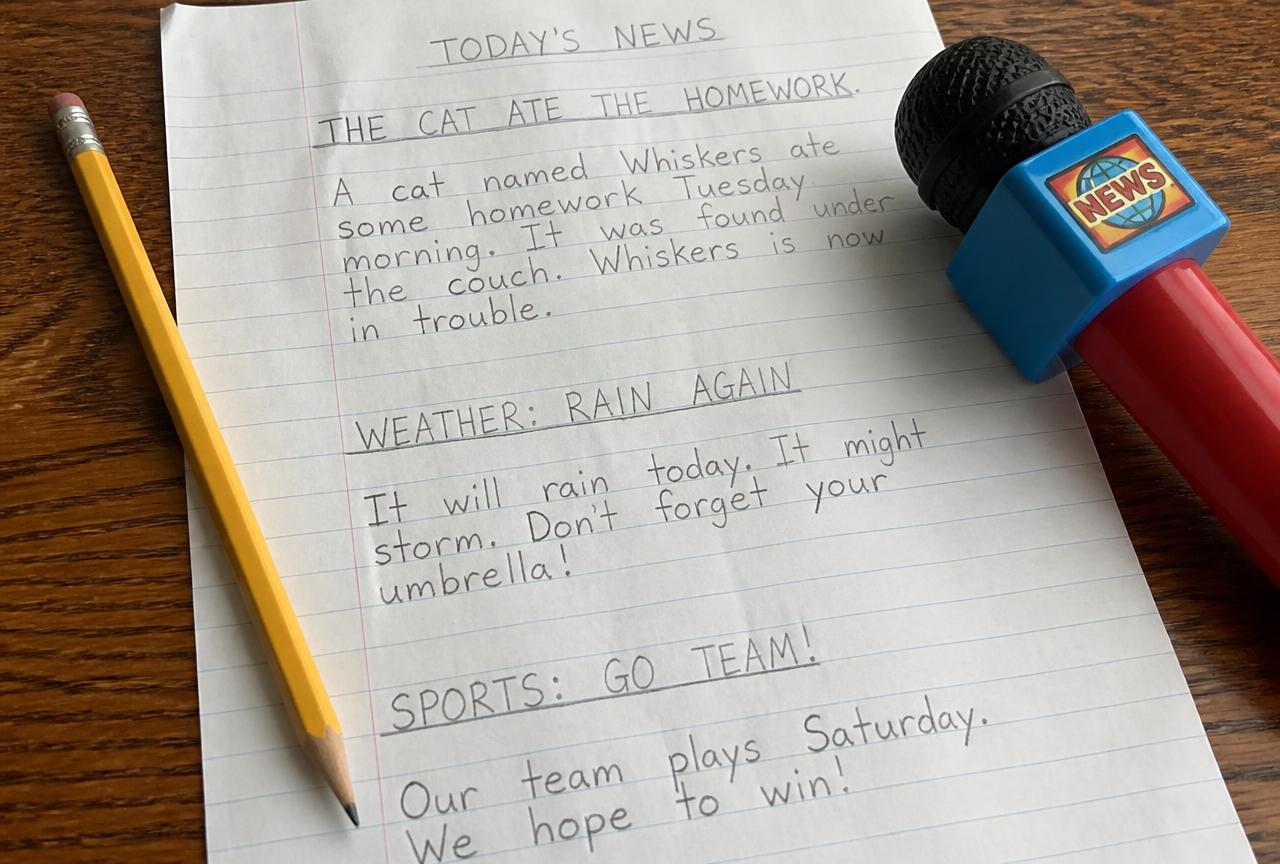 TODAY'S NEWS
THE CAT ATE THE HOMEWORK.
A cat named Whiskers ate
some homework Tuesday
morning. It was found under
the couch. Whiskers is now
in trouble.
WEATHER: RAIN AGAIN
It will rain today. It might
storm. Don't forget your
umbrella!
SPORTS: GO TEAM!
Our team plays Saturday.
We hope to win!
NEWS